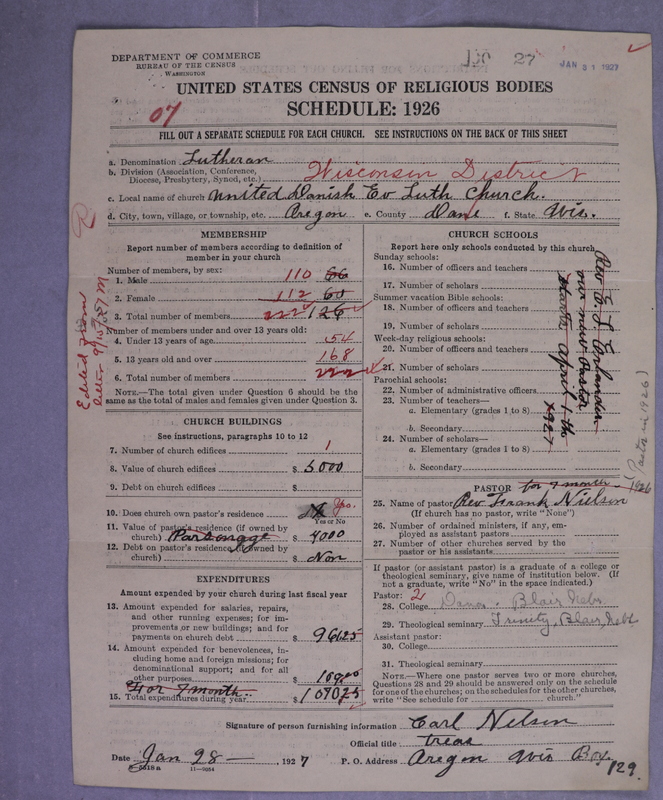 DEPARTMENT OF COMMERCE
BUREAU OF THE CENSUS
WASHINGTON
27
JAN 31 1927
UNITED STATES CENSUS OF RELIGIOUS BODIES
SCHEDULE: 1926
07
FILL OUT A SEPARATE SCHEDULE FOR EACH CHURCH. SEE INSTRUCTIONS ON THE BACK OF THIS SHEET
a. Denomination Lutheran
b. Division (Association, Conference, Diocese, Presbytery, Synod, etc.) Wisconsin District
c. Local name of church United Danish Ev Luth Church.
d. City, town, village, or township, etc. Oregon e. County Dane f. State Wis.
MEMBERSHIP
Report number of members according to definition of
member in your church
Number of members, by sex:
1. Male 110 66
2. Female 112 60
3. Total number of members 222 126
Number of members under and over 13 years old:
4. Under 13 years of age 54
5. 13 years old and over 168
6. Total number of members 222
NOTE.—The total given under Question 6 should be the
same as the total of males and females given under Question 3.
CHURCH BUILDINGS
See instructions, paragraphs 10 to 12
7. Number of church edifices 1
8. Value of church edifices $ 5000
9. Debt on church edifices $
10. Does church own pastor's residence Yes.
Yes or No
11. Value of pastor's residence (if owned by
church) Parsonage $ 4000
12. Debt on pastor's residence (if owned by
church) $ Non
EXPENDITURES
Amount expended by your church during last fiscal year
13. Amount expended for salaries, repairs,
and other running expenses; for im-
provements or new buildings; and for
payments on church debt $ 961.25
14. Amount expended for benevolences, in-
cluding home and foreign missions; for
denominational support; and for all
other purposes $ 109.00
For 9 month
15. Total expenditures during year $ 1070.25
CHURCH SCHOOLS
Report here only schools conducted by this church
Sunday schools:
16. Number of officers and teachers
17. Number of scholars
Summer vacation Bible schools:
18. Number of officers and teachers
19. Number of scholars
Week-day religious schools:
20. Number of officers and teachers
21. Number of scholars
Parochial schools:
22. Number of administrative officers
23. Number of teachers—
a. Elementary (grades 1 to 8)
b. Secondary
24. Number of scholars—
a. Elementary (grades 1 to 8)
b. Secondary
our new Pastor
April 1 the
1927
(Pastor in 1926)
PASTOR for 9 month 1926
25. Name of pastor Rev. Frank Nielson
(If church has no pastor, write "None")
26. Number of ordained ministers, if any, em-
ployed as assistant pastors
27. Number of other churches served by the
pastor or his assistants
If pastor (or assistant pastor) is a graduate of a college or
theological seminary, give name of institution below. (If
not a graduate, write "No" in the space indicated.)
Pastor: 2
28. College Dana. Blair Nebr
29. Theological seminary Trinity, Blair Nebr
Assistant pastor:
30. College
31. Theological seminary
NOTE.—Where one pastor serves two or more churches,
Questions 28 and 29 should be answered only on the schedule
for one of the churches; on the schedules for the other churches,
write "See schedule for church."
Signature of person furnishing information Carl Nelson
Official title Treas
Date Jan 28 , 1927 P. O. Address Oregon Wis Box 129.
11—9054